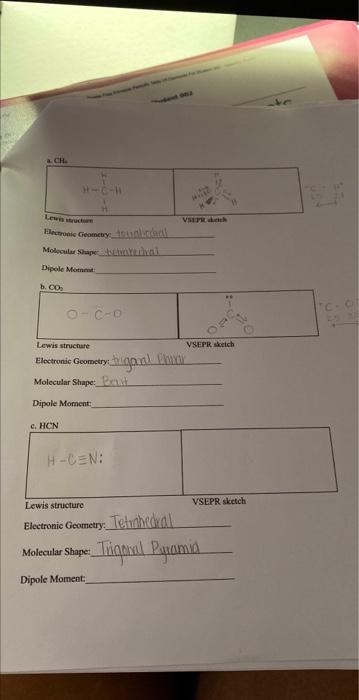 a. CH₄
H
H-C-H
H
Lewis structure
VSEPR sketch
Electronic Geometry: tetrahedral
Molecular Shape: tetrahedral
Dipole Moment:
b. CO₂
O-C-O
C
O O
Lewis structure
VSEPR sketch
Electronic Geometry: trigonal Planar
Molecular Shape: Bent
Dipole Moment:
c. HCN
H-C≡N:
Lewis structure
VSEPR sketch
Electronic Geometry: Tetrahedral
Molecular Shape: Trigonal Pyramid
Dipole Moment: